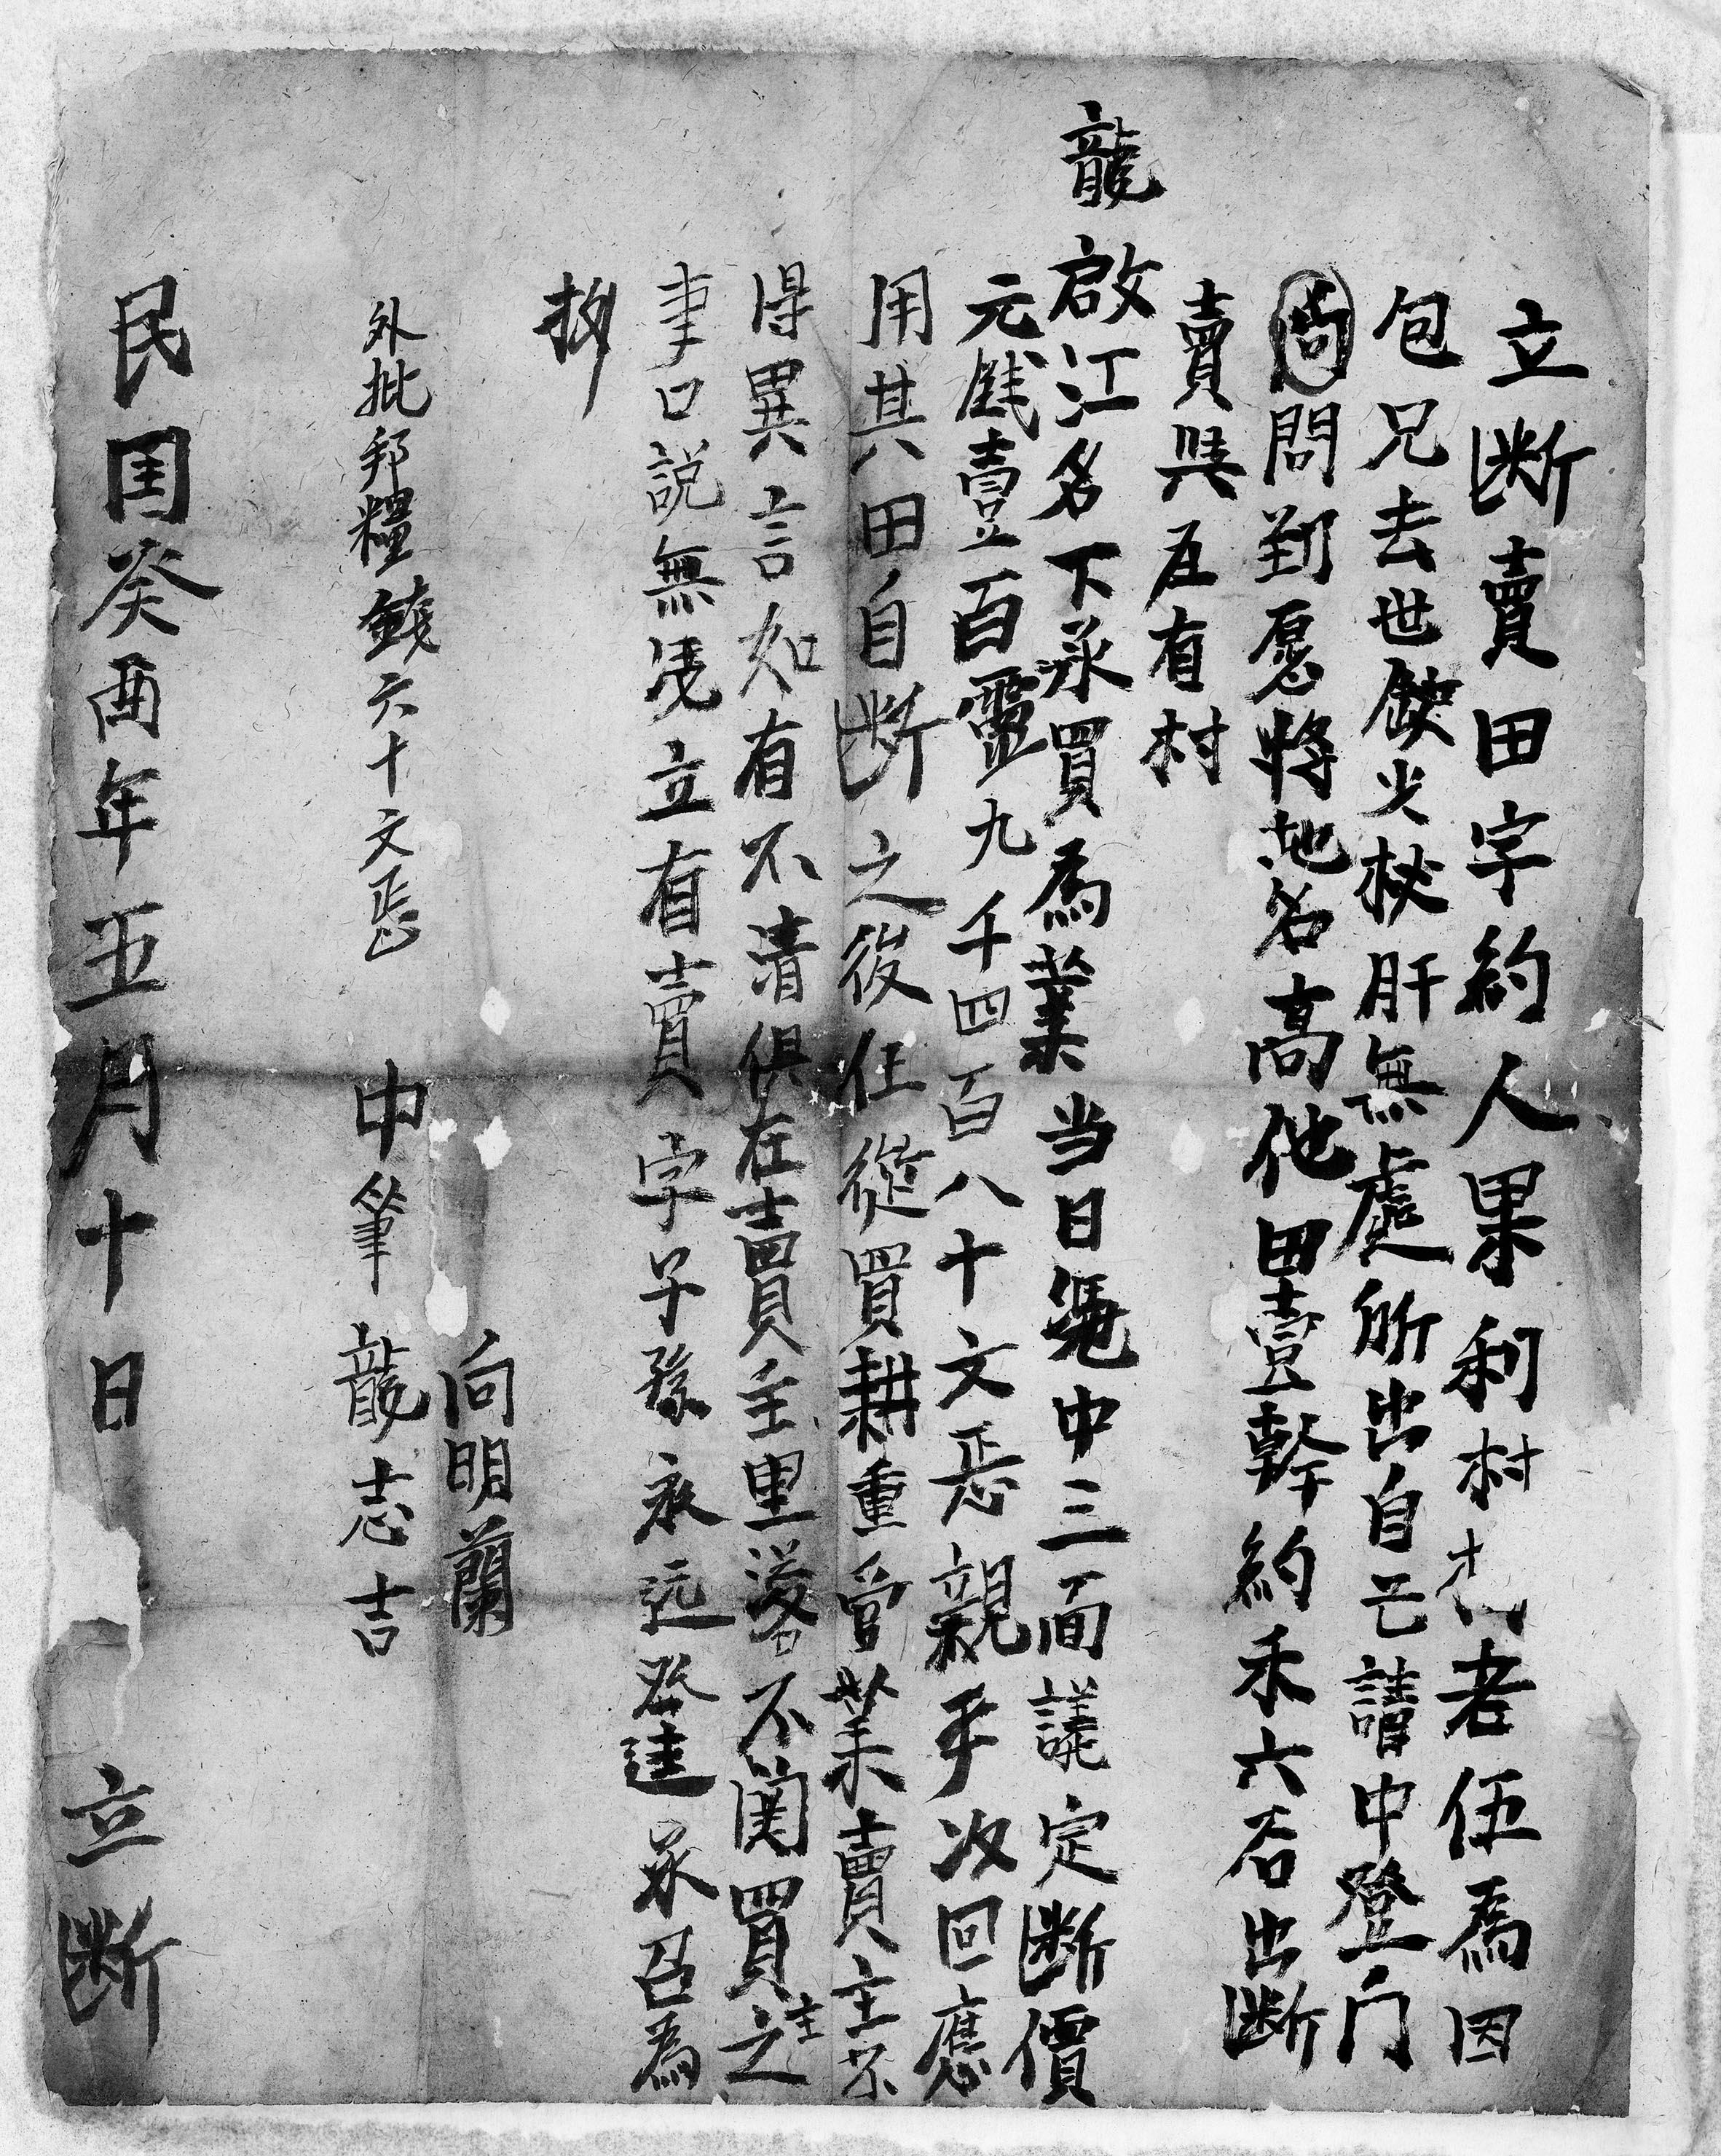 立斷賣田字約人果利村老伍為因
包兄去世缺少杉肝無處所出自己請中登門
尚問到愿將地名高他田壹幹約禾六石出斷
賣與瓦有村
龍啟江名下承買為業当日凴中三面議定斷價
元錢壹百靈九千四百八十文恁親手收回應
用其田自斷之後任從買耕重管業賣主不
得異言如有不清俱在賣主里落不関買主之
事口説無凴立有賣字子孫永远發達承召為
拠
外批邦糧錢六十文恁
向明蘭
中筆龍志吉
民国癸酉年五月十日立斷